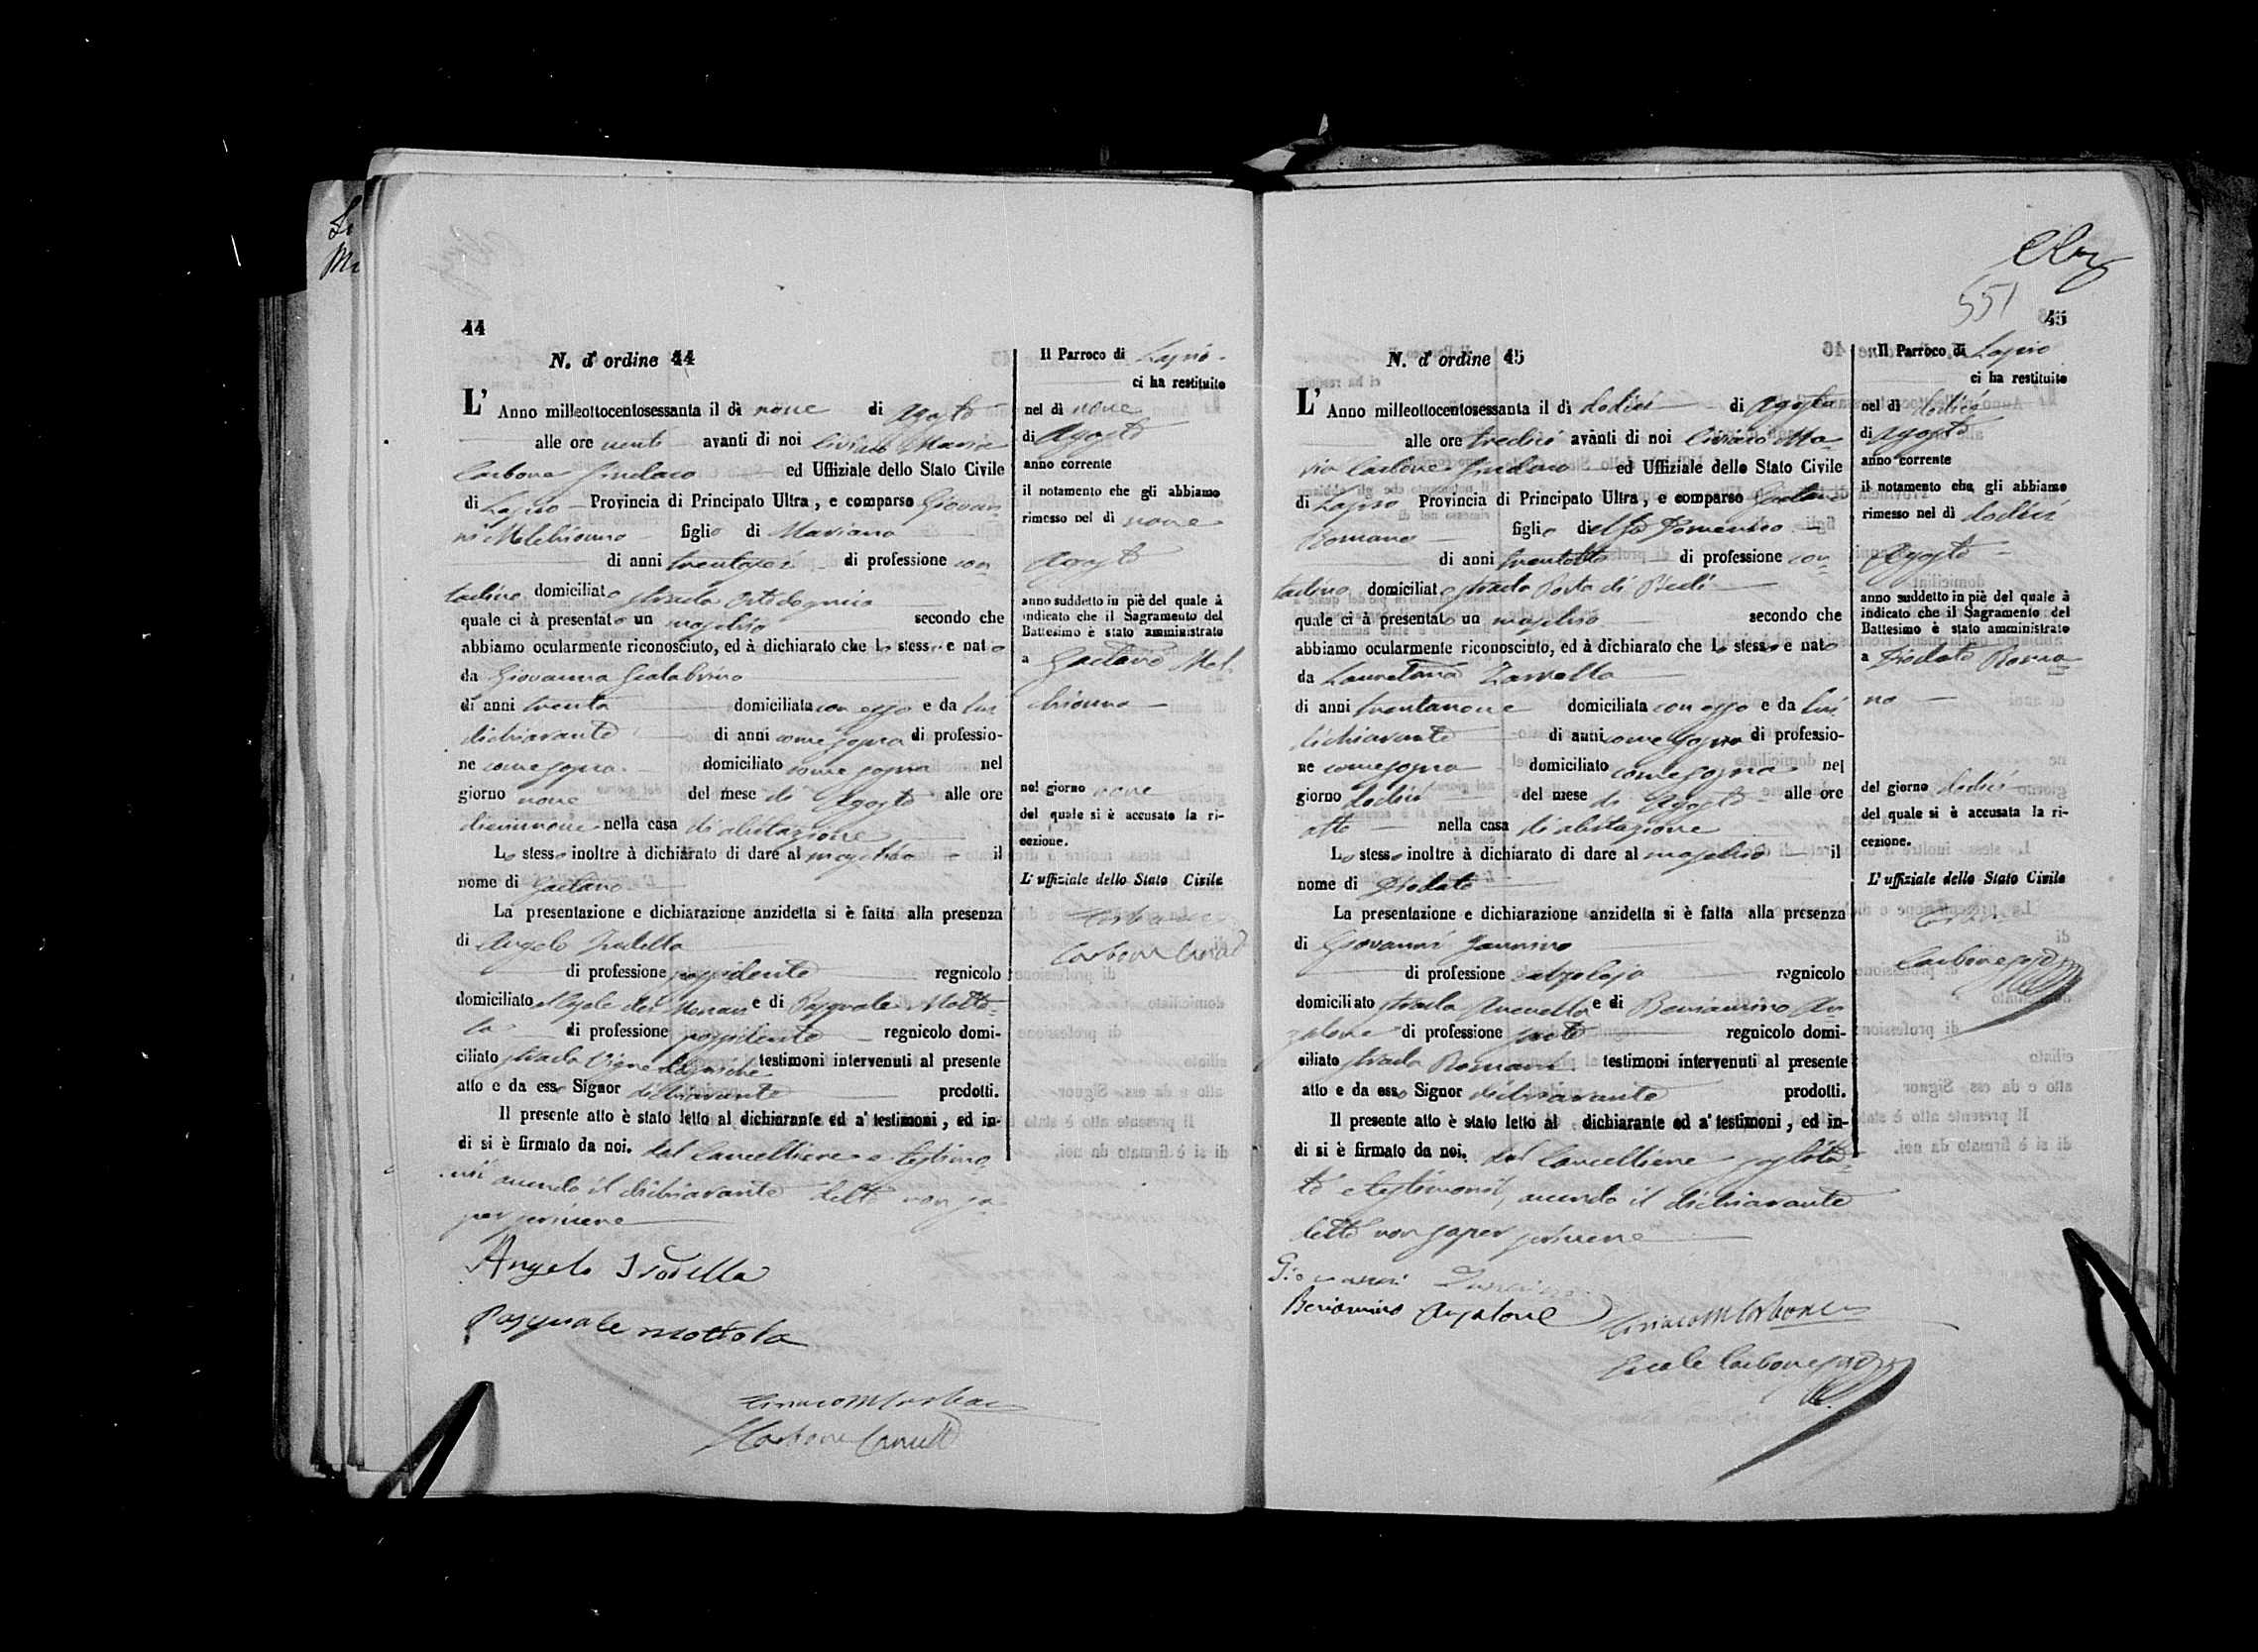 44
N. d'ordine 44
L' Anno milleottocentosessanta il dì nove di Agosto
alle ore venti avanti di noi Ciriaco Maria
Carbone Sindaco ed Uffiziale dello Stato Civile
di Lapio Provincia di Principato Ultra, e comparso Giovan
ni Melchionno figlio di Mariano
di anni trentasei di professione con
tadino domiciliato strada
quale ci à presentato un maschio secondo che
abbiamo ocularmente riconosciuto, ed à dichiarato che Lo stesso e nato
da Giovanna Scalabrino
di anni trenta domiciliata con esso e da lui
dichiarante di anni come sopra di professio-
ne come sopra domiciliato come sopra nel
giorno nove del mese di Agosto alle ore
diecinnove nella casa di abitazione
Lo stesso inoltre à dichiarato di dare al maschio il
nome di Gaetano
La presentazione e dichiarazione anzidetta si è fatta alla presenza
di Angelo
di professione possidente regnicolo
domiciliato e di Pasquale Motto-
la di professione possidente regnicolo domi-
ciliato strada Vigne testimoni intervenuti al presente
atto e da esso Signor dichiarante prodotti.
Il presente atto è stato letto al dichiarante ed a' testimoni, ed in-
di si è firmato da noi. dal Cancelliere e testimo
nii avendo il dichiarante detto non sa-
per scrivere
Angelo
Pasquale Mottola
Ciriaco M Carbone
Carbone
Il Parroco di Lapio
ci ha restituito
nel dì nove
di Agosto
anno corrente
il notamento che gli abbiamo
rimesso nel dì nove
Agosto
anno suddetto in piè del quale à
indicato che il Sagramento del
Battesimo è stato amministrato
a Gaetano Mel-
chionno
nel giorno nove
del quale si è accusato la ri-
cezione.
L'uffiziale dello Stato Civile
Carbone
551
45
N. d'ordine 45
L' Anno milleottocentosessanta il dì dodici di Agosto
alle ore tredici avanti di noi Ciriaco Ma-
ria Carbone Sindaco ed Uffiziale dello Stato Civile
di Lapio Provincia di Principato Ultra, e comparso Gaetano
Romano figlio di Domenico
di anni trentotto di professione con-
tadino domiciliato strada Porta di
quale ci à presentato un maschio secondo che
abbiamo ocularmente riconosciuto, ed à dichiarato che Lo stesso e nato
da Lauretana Zarrella
di anni trentanove domiciliata con esso e da lui
dichiarante di anni come sopra di professio-
ne come sopra domiciliato come sopra nel
giorno dodici del mese di Agosto alle ore
otto nella casa di abitazione
Lo stesso inoltre à dichiarato di dare al maschio il
nome di Diodato
La presentazione e dichiarazione anzidetta si è fatta alla presenza
di Giovanni
di professione calzolajo regnicolo
domiciliato strada e di Beniamino An-
zalone di professione sarto regnicolo domi-
ciliato strada Romani testimoni intervenuti al presente
atto e da esso Signor dichiarante prodotti.
Il presente atto è stato letto al dichiarante ed a' testimoni, ed in-
di si è firmato da noi. dal Cancelliere sostitu-
to e testimonii, avendo il dichiarante
detto non saper scrivere
Giovanni
Beniamino Anzalone
Ciriaco M Carbone
Carbone
Il Parroco di Lapio
ci ha restituito
nel dì dodici
di Agosto
anno corrente
il notamento che gli abbiamo
rimesso nel dì dodici
Agosto
anno suddetto in piè del quale à
indicato che il Sagramento del
Battesimo è stato amministrato
a Diodato Roma-
no
del giorno dodici
del quale si è accusata la ri-
cezione.
L'uffiziale dello Stato Civile
Carbone